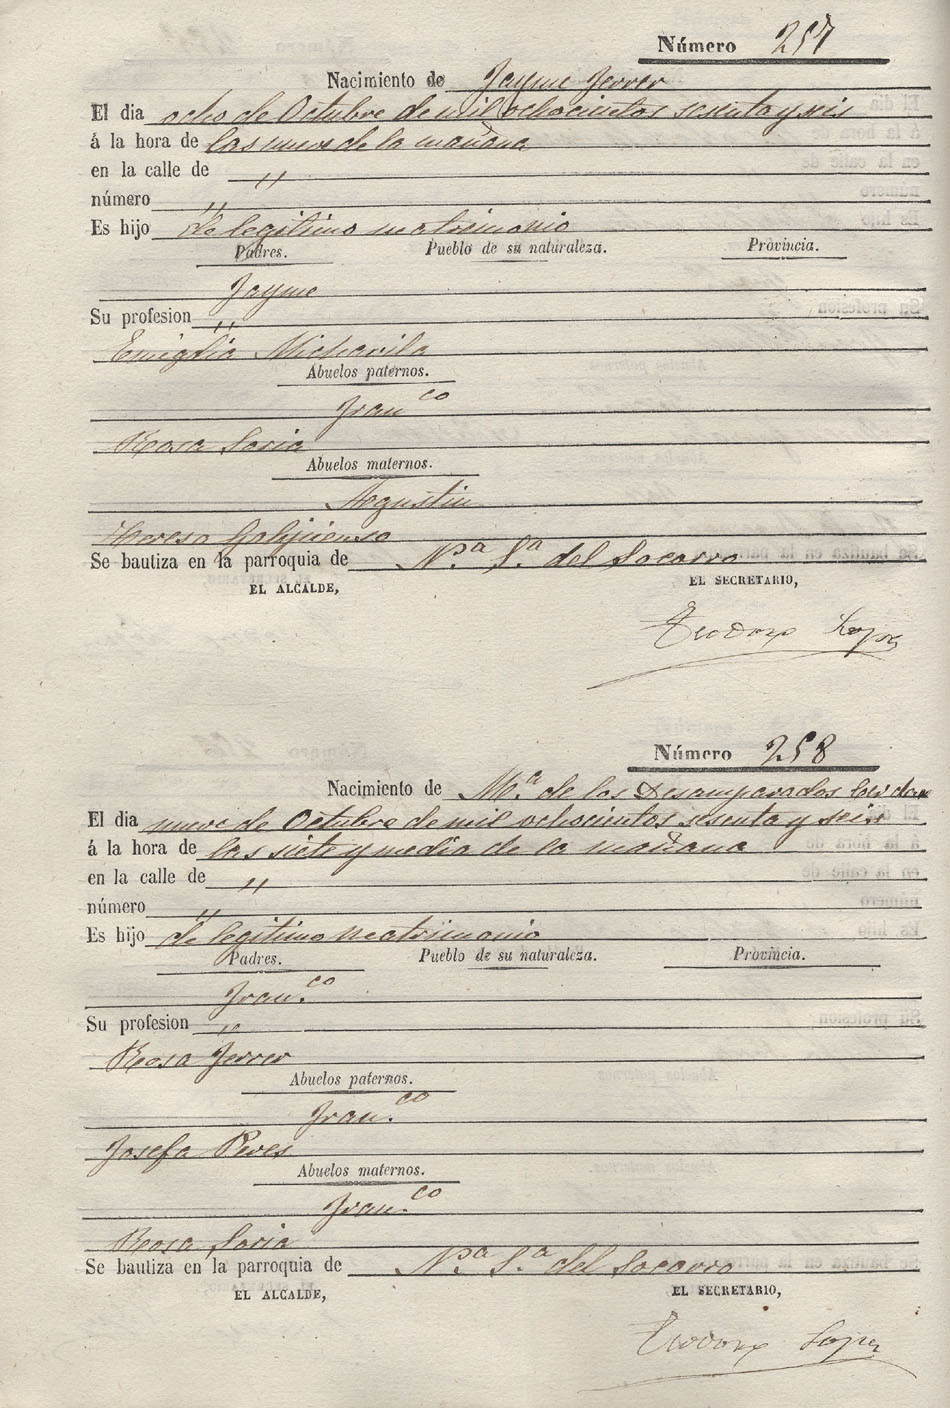 Número 257
Nacimiento de Jayme Ferrer
El dia ocho de Octubre de mil ochocientos sesenta y seis
á la hora de las nueve de la mañana
en la calle de "
número "
Es hijo de legitimo matrimonio
Padres. Pueblo de su naturaleza. Provincia.
Jayme
Su profesion "
Emiglia
Abuelos paternos.
Franco
Rosa Soria
Abuelos maternos.
Agustin
Teresa
Se bautiza en la parroquia de N.ª S.ª del Socorro
EL ALCALDE, EL SECRETARIO,
Teodoro Lopez
Número 258
Nacimiento de M.ª de los Desamparados
El dia nueve de Octubre de mil ochocientos sesenta y seis
á la hora de las siete y media de la mañana
en la calle de "
número "
Es hijo de legitimo matrimonio
Padres. Pueblo de su naturaleza. Provincia.
Fran.co
Su profesion "
Rosa Ferrer
Abuelos paternos.
Fran.co
Josefa Peres
Abuelos maternos.
Fran.co
Rosa Soria
Se bautiza en la parroquia de N.ª S.ª del Socorro
EL ALCALDE, EL SECRETARIO,
Teodoro Lopez